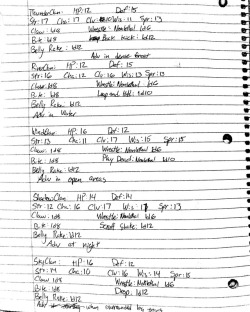 ThunderClan: HP: 12 Def: 15
Str: 17 Cha: 17 Clv: 11 Wis: 11 Spr: 13
Claw: 1d8 Wrestle: Nonlethal 1d6
Bite: 1d8 Back kick: 1d12
Belly Rake: 1d12
Adv in dense forest
RiverClan: HP: 12 Def: 15
Str: 16 Cha: 12 Clv: 16 Wis: 13 Spr: 13
Claw: 1d8 Wrestle: Nonlethal 1d6
Bite: 1d8 Leap and Hold: 1d10
Belly Rake: 1d12
Adv in Water
WindClan: HP: 16 Def: 12
Str: 13 Cha: 11 Clv: 17 Wis: 15 Spr: 15
Claw: 1d8 Wrestle: Nonlethal 1d6
Bite: 1d8 Play Dead: Nonlethal 1d10
Belly Rake: 1d12
Adv in open areas
ShadowClan HP: 14 Def: 14
Str: 12 Cha: 16 Clv: 17 Wis: Spr: 13
Claw: 1d8 Wrestle: Nonlethal 1d6
Bite: 1d8 Scruff Shake: 1d12
Belly Rake: 1d12
Adv at night
SkyClan: HP: 16 Def: 12
Str: 14 Cha: 10 Clv: 16 Wis: 14 Spr: 15
Claw: 1d8 Wrestle: Nonlethal 1d6
Bite: 1d8 Drop: 1d12
Belly Rake: 1d12
Adv when surrounded by trees